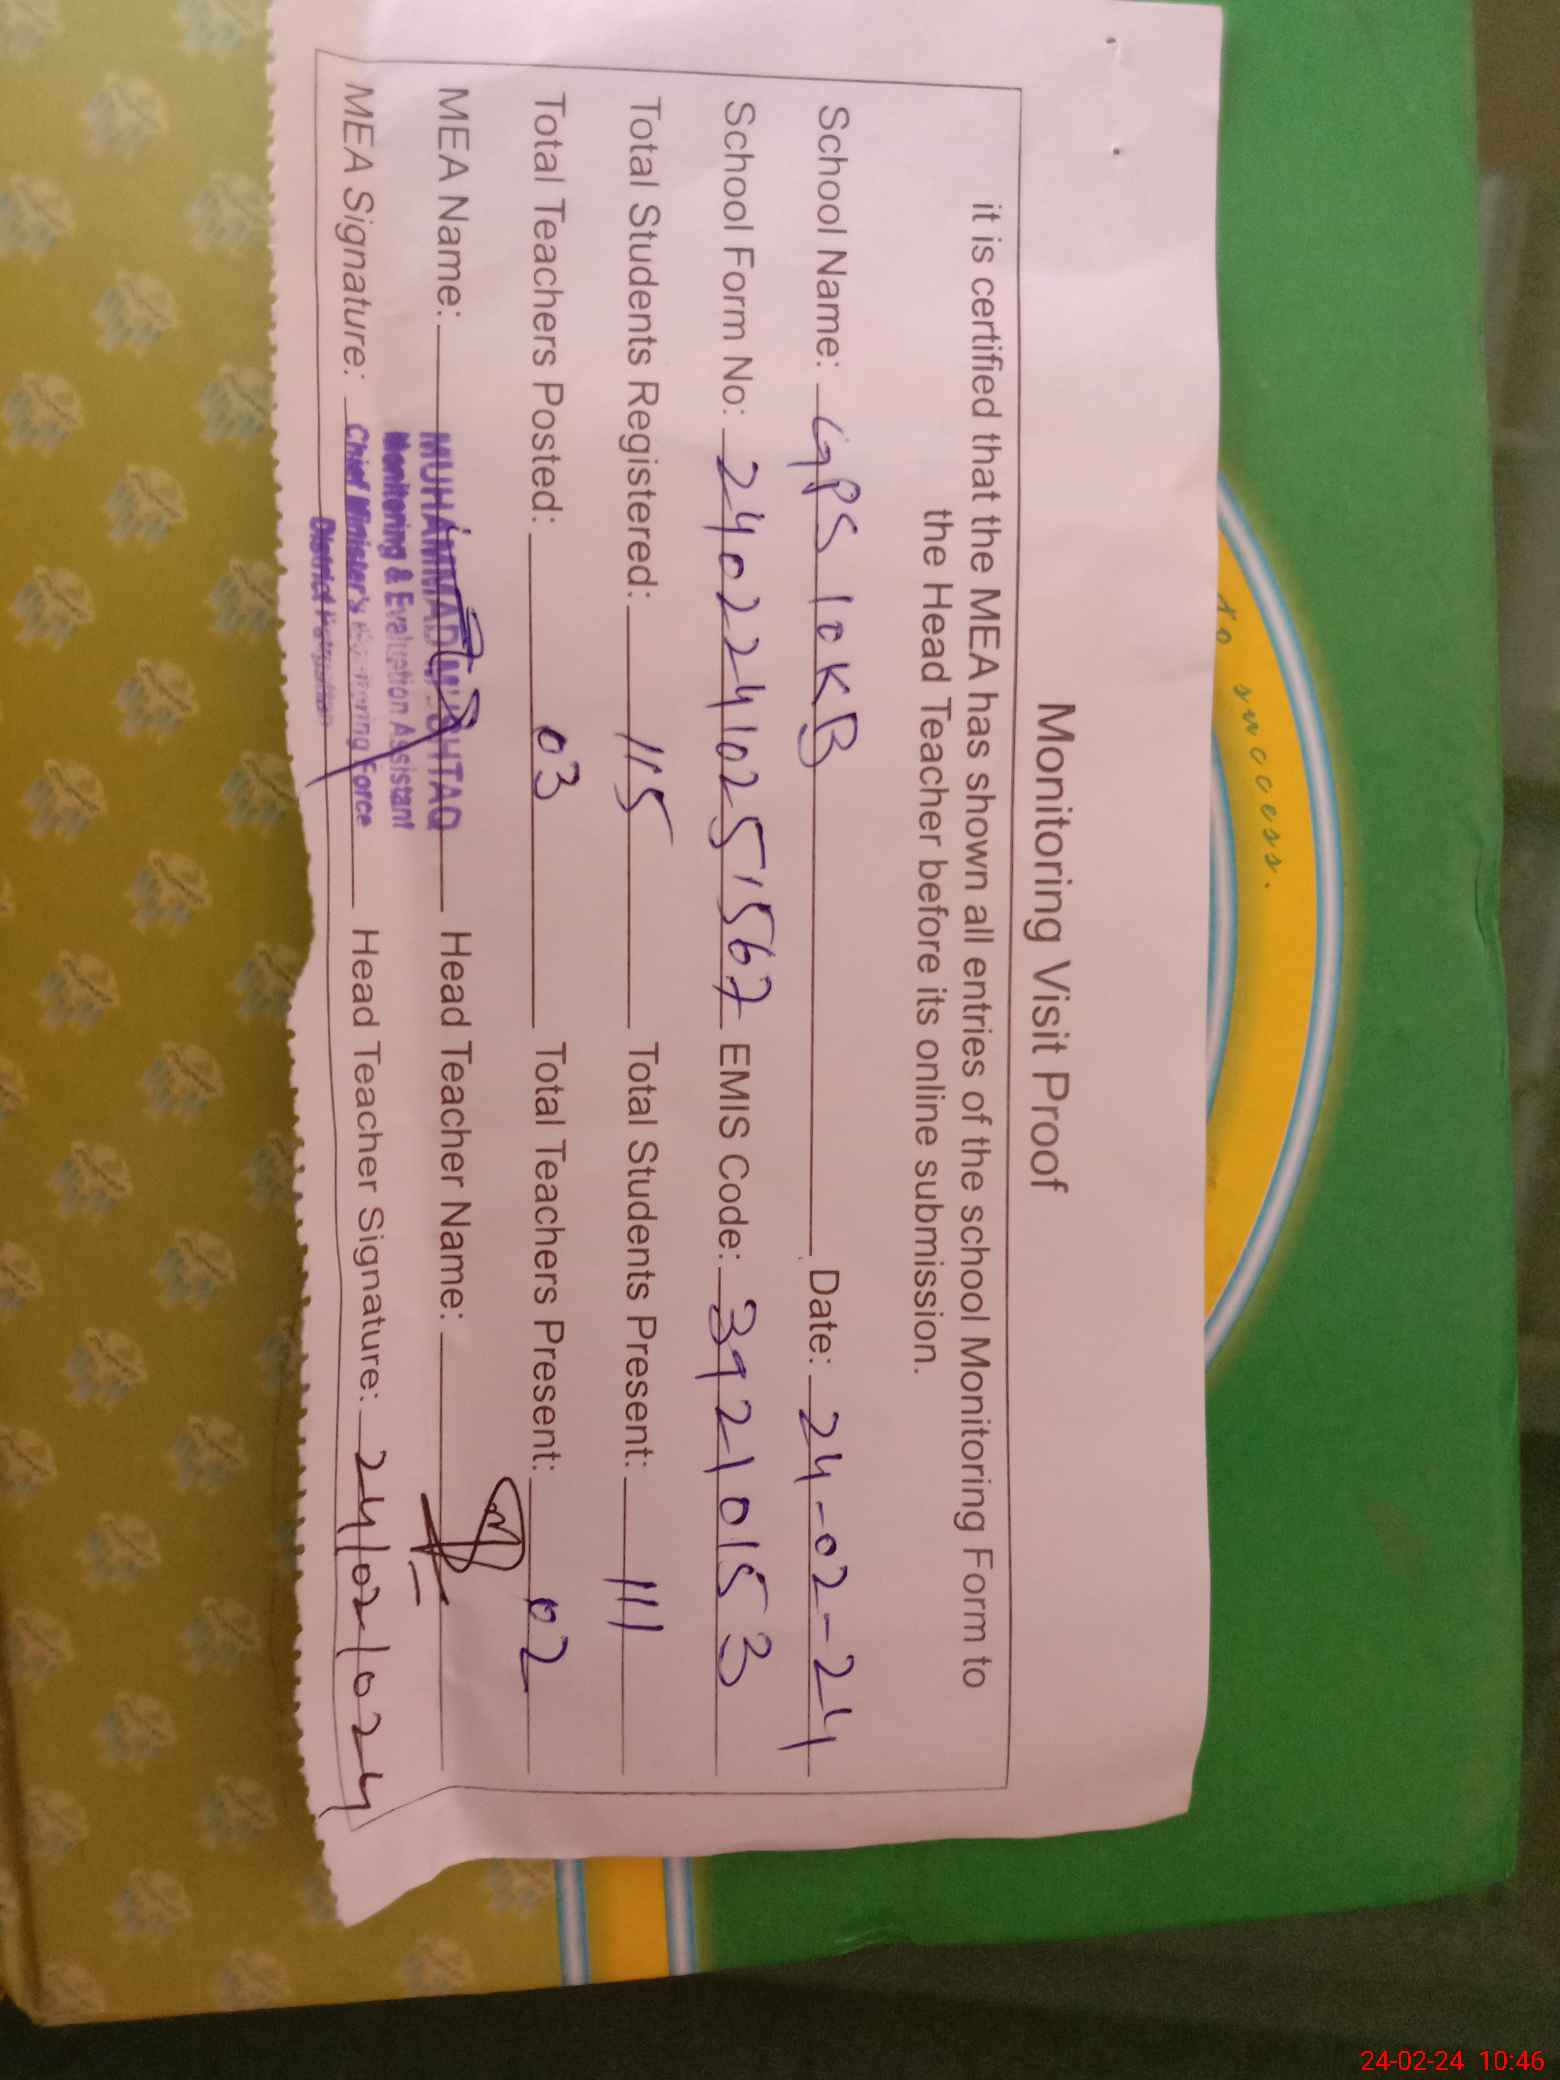 Monitoring Visit Proof
it is certified that the MEA has shown all entries of the school Monitoring Form to
the Head Teacher before its online submission.
School Name: GPS 10KB Date: 24-02-24
School Form No: 24022410251567 EMIS Code: 39210153
Total Students Registered: 115 Total Students Present: 111
Total Teachers Posted: 03 Total Teachers Present: 02
MEA Name: MUHAMMAD MUSHTAQ Head Teacher Name:
Monitoring & Evaluation Assistant
MEA Signature: Chief Minister's Monitoring Force Head Teacher Signature: 24/02/024
District Pakpattan
to success.
24-02-24 10:46